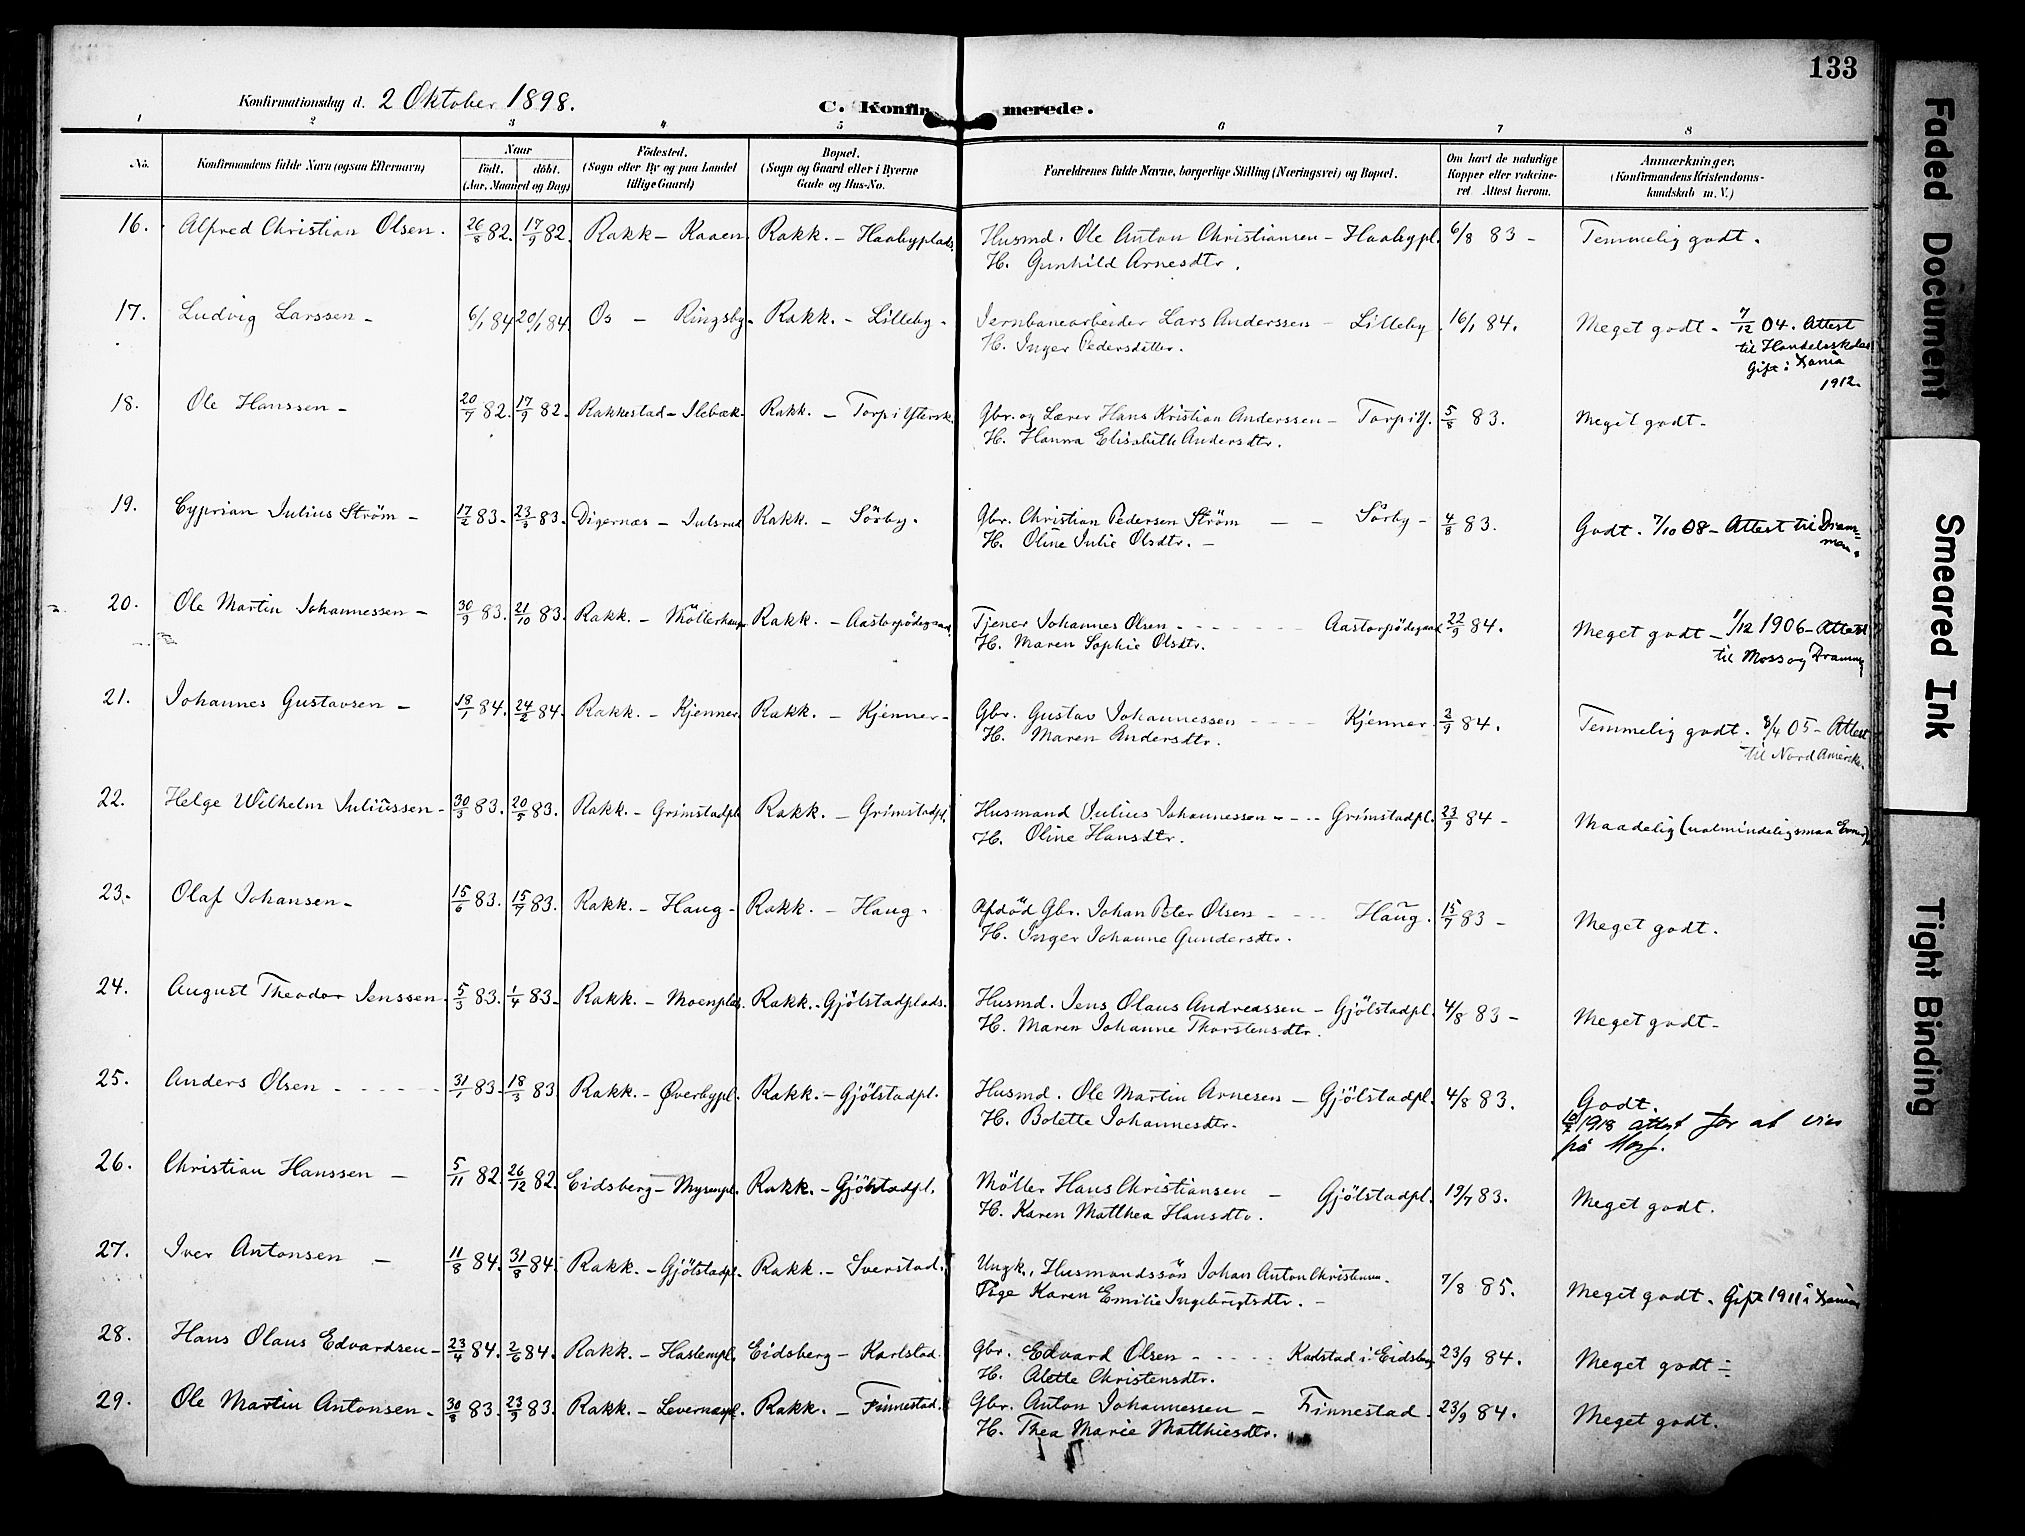 133
Konfirmationsdag d. 2 Oktober 1898.
C. Konfirmerede.
1 2 3 4 5 6 7 8
No. Konfirmandens fulde Navn (ogsaa Efternavn) Naar Födt. döbt. (Aar, Maaned og Dag) Födested. (Sogn eller By og paa Landet tillige Gaard) Bopæl. (Sogn og Gaard eller i Byerne Gade og Hus-No. Forældrenes fulde Navne, borgerlige Stilling (Næringsvei) og Bopæl. Om havt de naturlige Kopper eller vakcineret. Attest herom. Anmærkninger. (Konfirmandens Kristendomskundskab m. V.)
16. Alfred Christian Olsen. 26/8 82. 17/9 82. Rakk – Kaaen Rakk. – Haabyplads. Husmd. Ole Anton Christiansen – Haabypl. 6/8 83 – Temmelig godt.
H. Gunhild Arnesdtr.
17. Ludvig Larssen – 6/1 84 20/1 84. Os – Ringsby – Rakk. – Lilleby – Jernbanearbeider Lars Anderssen – Lilleby. 16/1 84. Meget godt. 7/12 04. Attest
H. Inger Pedersdatter. til Handelsskole
Gift i Xania
1912.
18. Ole Hanssen – 20/7 82. 17/9 82. Rakkestad – Ilebæk – Rakk. – Torp i Ytersk. Gbr. og Lærer Hans Kristian Anderssen – Torp i Y. 5/8 83. Meget godt –
H. Hanna Elisabeth Andersdtr.
19. Cyprian Julius Ström – 17/2 83. 23/3 83. Digernæs – Julsrud Rakk. – Sörby. Gbr. Christian Pedersen Ström – – Sörby – 4/8 83. Godt. 7/10 08 – Attest til Dram=
H. Oline Julie Olsdtr. – men.
20. Ole Martin Johannessen – 30/9 83. 21/10 83. Rakk. – Möllerhaug Rakk. – Aastorpödegaard. Tjener Johannes Olsen – Aastorpödegaard 22/9 84. Meget godt – 1/12 1906 – Attest
H. Maren Sophie Olsdtr. til Moss og Dramm
21. Johannes Gustavsen – 18/1 84. 24/2 84. Rakk. – Kjenner. Rakk. – Kjenner – Gbr. Gustav Johannessen – Kjenner. 2/9 84. Temmelig godt. 8/4 05 – Attest
H. Maren Andersdtr. til Nord Amerika.
22. Helge Wilhelm Juliussen – 30/3 83. 20/5 83. Rakk. – Grimstadpl. Rakk. – Grimstadpl. Husmand Julius Johannessen – Grimstadpl. 23/9 84 – Maadelig (ualmindelig smaa Evner)
H. Oline Hansdtr.
23. Olaf Johansen – 15/6 83. 15/7 83. Rakk. – Haug – Rakk. – Haug. Afdöd Gbr. Johan Peter Olsen – Haug. 15/7 83 – Meget godt.
H. Inger Johanne Gundersdtr.
24. August Theodor Jenssen 5/3 83. 1/4 83 – Rakk. – Moenplads. Rakk. – Gjölstadplads. Husmd. Jens Olaus Andreassen – Gjölstadpl. 4/8 83 – Meget godt –
H. Maren Johanne Thorstensdtr.
25. Anders Olsen – 31/1 83. 18/3 83 Rakk. – Øverbypl. Rakk. – Gjölstadpl. Husmd. Ole Martin Arnesen – Gjölstadpl. 4/8 83. Godt.
H. Bolette Johannesdtr. 10/2 1918 attest for at vies
på
26. Christian Hanssen – 5/11 82. 26/12 82. Eidsberg – Mysenpl. Rakk. – Gjölstadpl. Möller Hans Christiansen – Gjölstadpl. 19/7 83. Meget godt.
H. Karen Matthea Hansdtr.
27. Iver Antonsen – 11/8 84. 31/8 84. Rakk. – Gjölstadpl. Rakk. – Sverstad. Ungk., Husmandssön Johan Anton Christiansen. 7/8 85. Meget godt. Gift 1911 i Xania
Pige Karen Emilie Ingebrigtsdtr. –
28. Hans Olaus Edvardsen – 23/4 84. 2/6 84. Rakk. – Haslempl. Eidsberg – Karlstad. Gbr. Edvard Olsen – Karlstad i Eidsberg 23/9 84. Meget godt –
H. Alette Christensdtr.
29. Ole Martin Antonsen – 30/8 83. 23/9 83. Rakk. – Levernæspl. Rakk. – Finnestad. Gbr. Anton Johannessen – Finnestad – 23/9 84. Meget godt.
H. Thea Marie Matthiesdtr.
Faded Document
Smeared Ink
Tight Binding